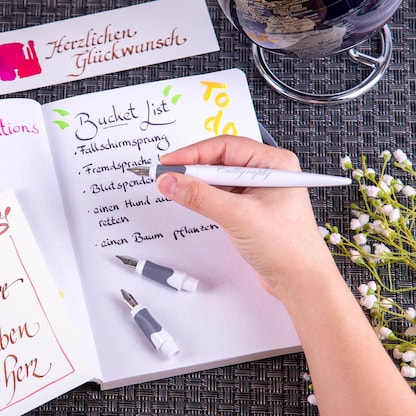 Herzlichen
Glückwunsch
Bucket List
To
do
• Fallschirmsprung
• Fremdsprache
• Blutspenden
• einen Hund aus
retten
• einen Baum pflanzen
Calligraphy
ben
herz